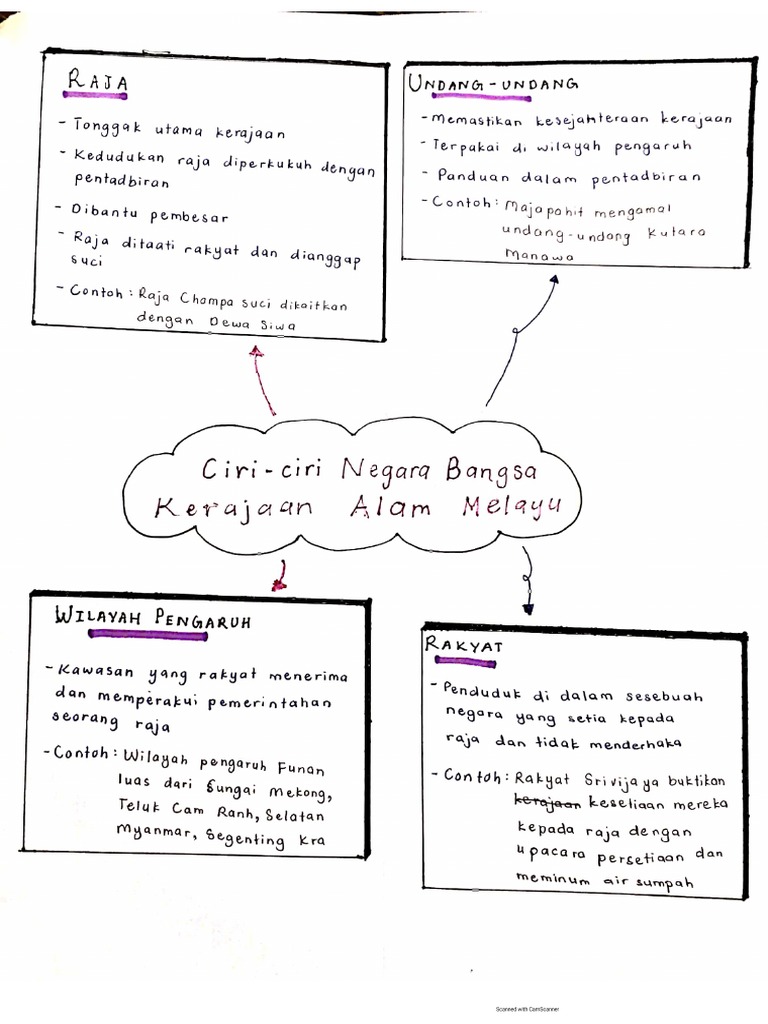 RAJA
- Tonggak utama kerajaan
- Kedudukan raja diperkukuh dengan
pentadbiran
- Dibantu pembesar
- Raja ditaati rakyat dan dianggap
suci
- Contoh : Raja Champa suci dikaitkan
dengan Dewa Siwa
UNDANG-UNDANG
- Memastikan kesejahteraan kerajaan
- Terpakai di wilayah pengaruh
- Panduan dalam pentadbiran
- Contoh : Majapahit mengamal
undang-undang Kutara
Manawa
Ciri-ciri Negara Bangsa
Kerajaan Alam Melayu
WILAYAH PENGARUH
- Kawasan yang rakyat menerima
dan memperakui pemerintahan
seorang raja
- Contoh : Wilayah pengaruh Funan
luas dari Sungai Mekong,
Teluk Cam Ranh, Selatan
Myanmar, Segenting Kra
RAKYAT
- Penduduk di dalam sesebuah
negara yang setia kepada
raja dan tidak menderhaka
- Contoh : Rakyat Srivijaya buktikan
kerajaan keseliaan mereka
kepada raja dengan
upacara persetiaan dan
meminum air sumpah
Scanned with CamScanner